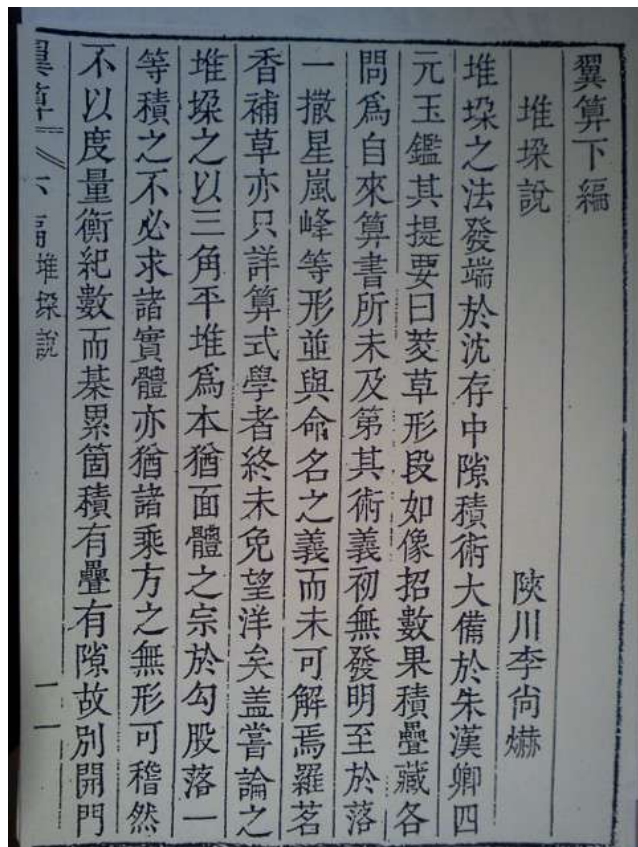 翼算下編
堆垜說
陜川李尙爀
堆垜之法發端於沈存中隙積術大備於朱漢卿四
元玉鑑其提要曰茭草形段如像招數果積疊藏各
問爲自來算書所未及第其術義初無發明至於落
一撒星嵐峰等形並與命名之義而未可解焉羅茗
香補草亦只詳算式學者終未免望洋矣盖嘗論之
堆垜之以三角平堆爲本猶面體之宗於勾股落一
等積之不必求諸實體亦猶諸乘方之無形可稽然
不以度量衡紀數而綦累箇積有疊有隙故別開門
翼算
下編堆垜說